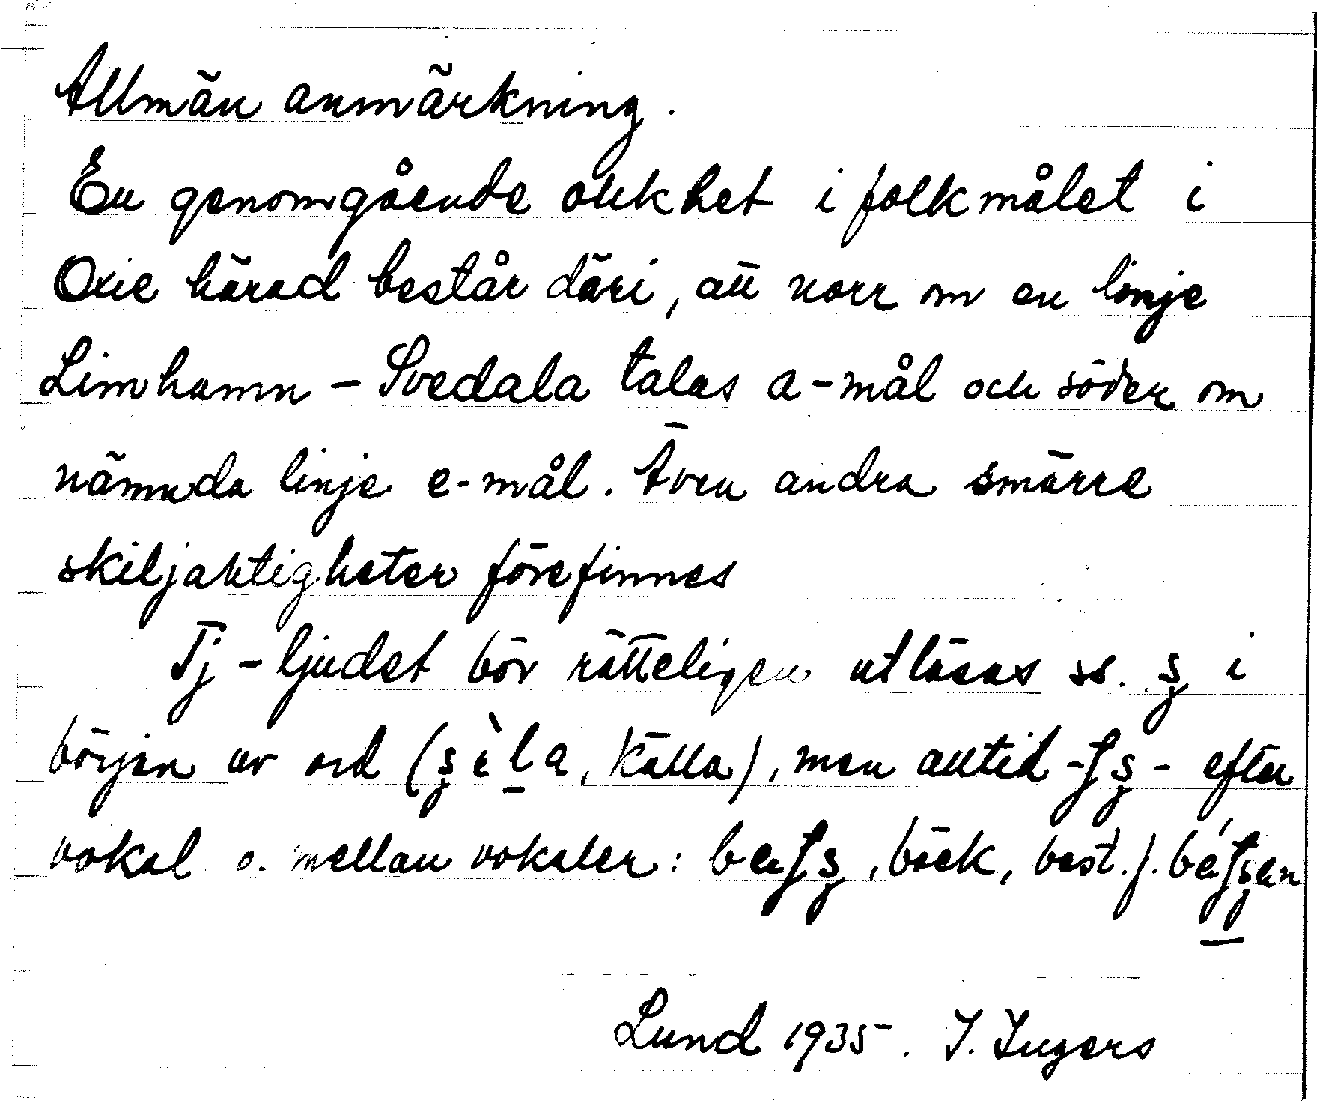 Allmän anmärkning.
En genomgående olikhet i folkmålet i
Oxie härad består däri, att norr om en linje
Limhamn – Svedala talas a-mål och söder om
nämnda linje e-mål. Även andra smärre
skiljaktigheter förefinnes
Tj-ljudet bör rätteligen utläsas ss. ʂ i
början av ord (ʂèla, källa), men alltid -ʃʂ- efter
vokal o. mellan vokaler: beʃʂ, bäck, best. f. béʃʂen
Lund 1935. I. Ingers